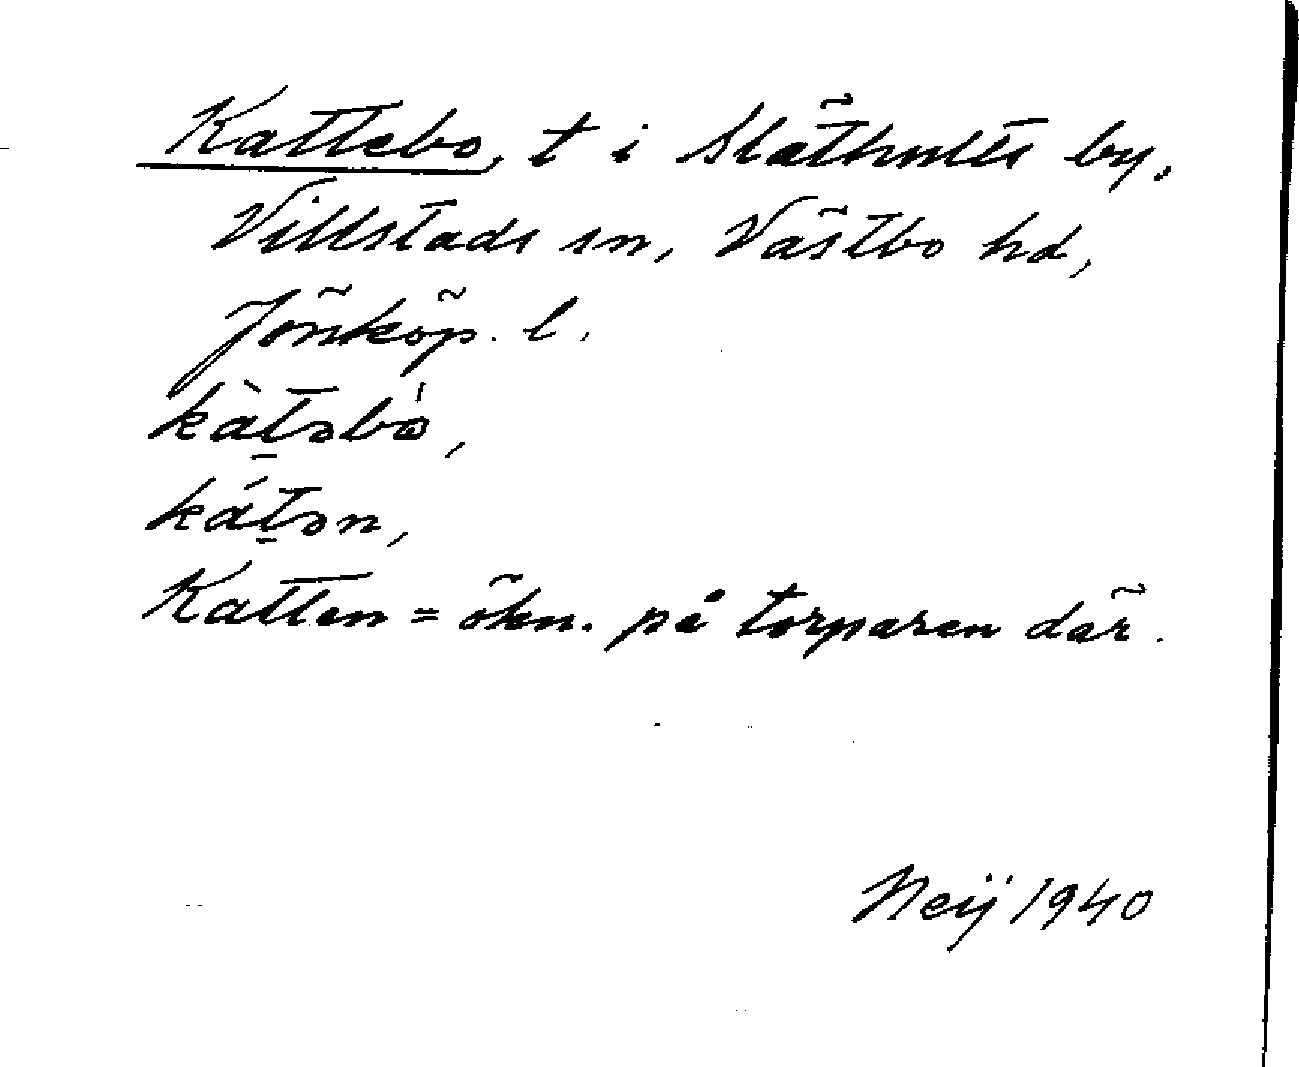 Kattebo, t i Släthults by,
Villstads sn, Västbo hd,
Jönköp. l.
kàt̠əbó,
kát̠ən,
Katten = ökn. på torparen där.
Neij 1940